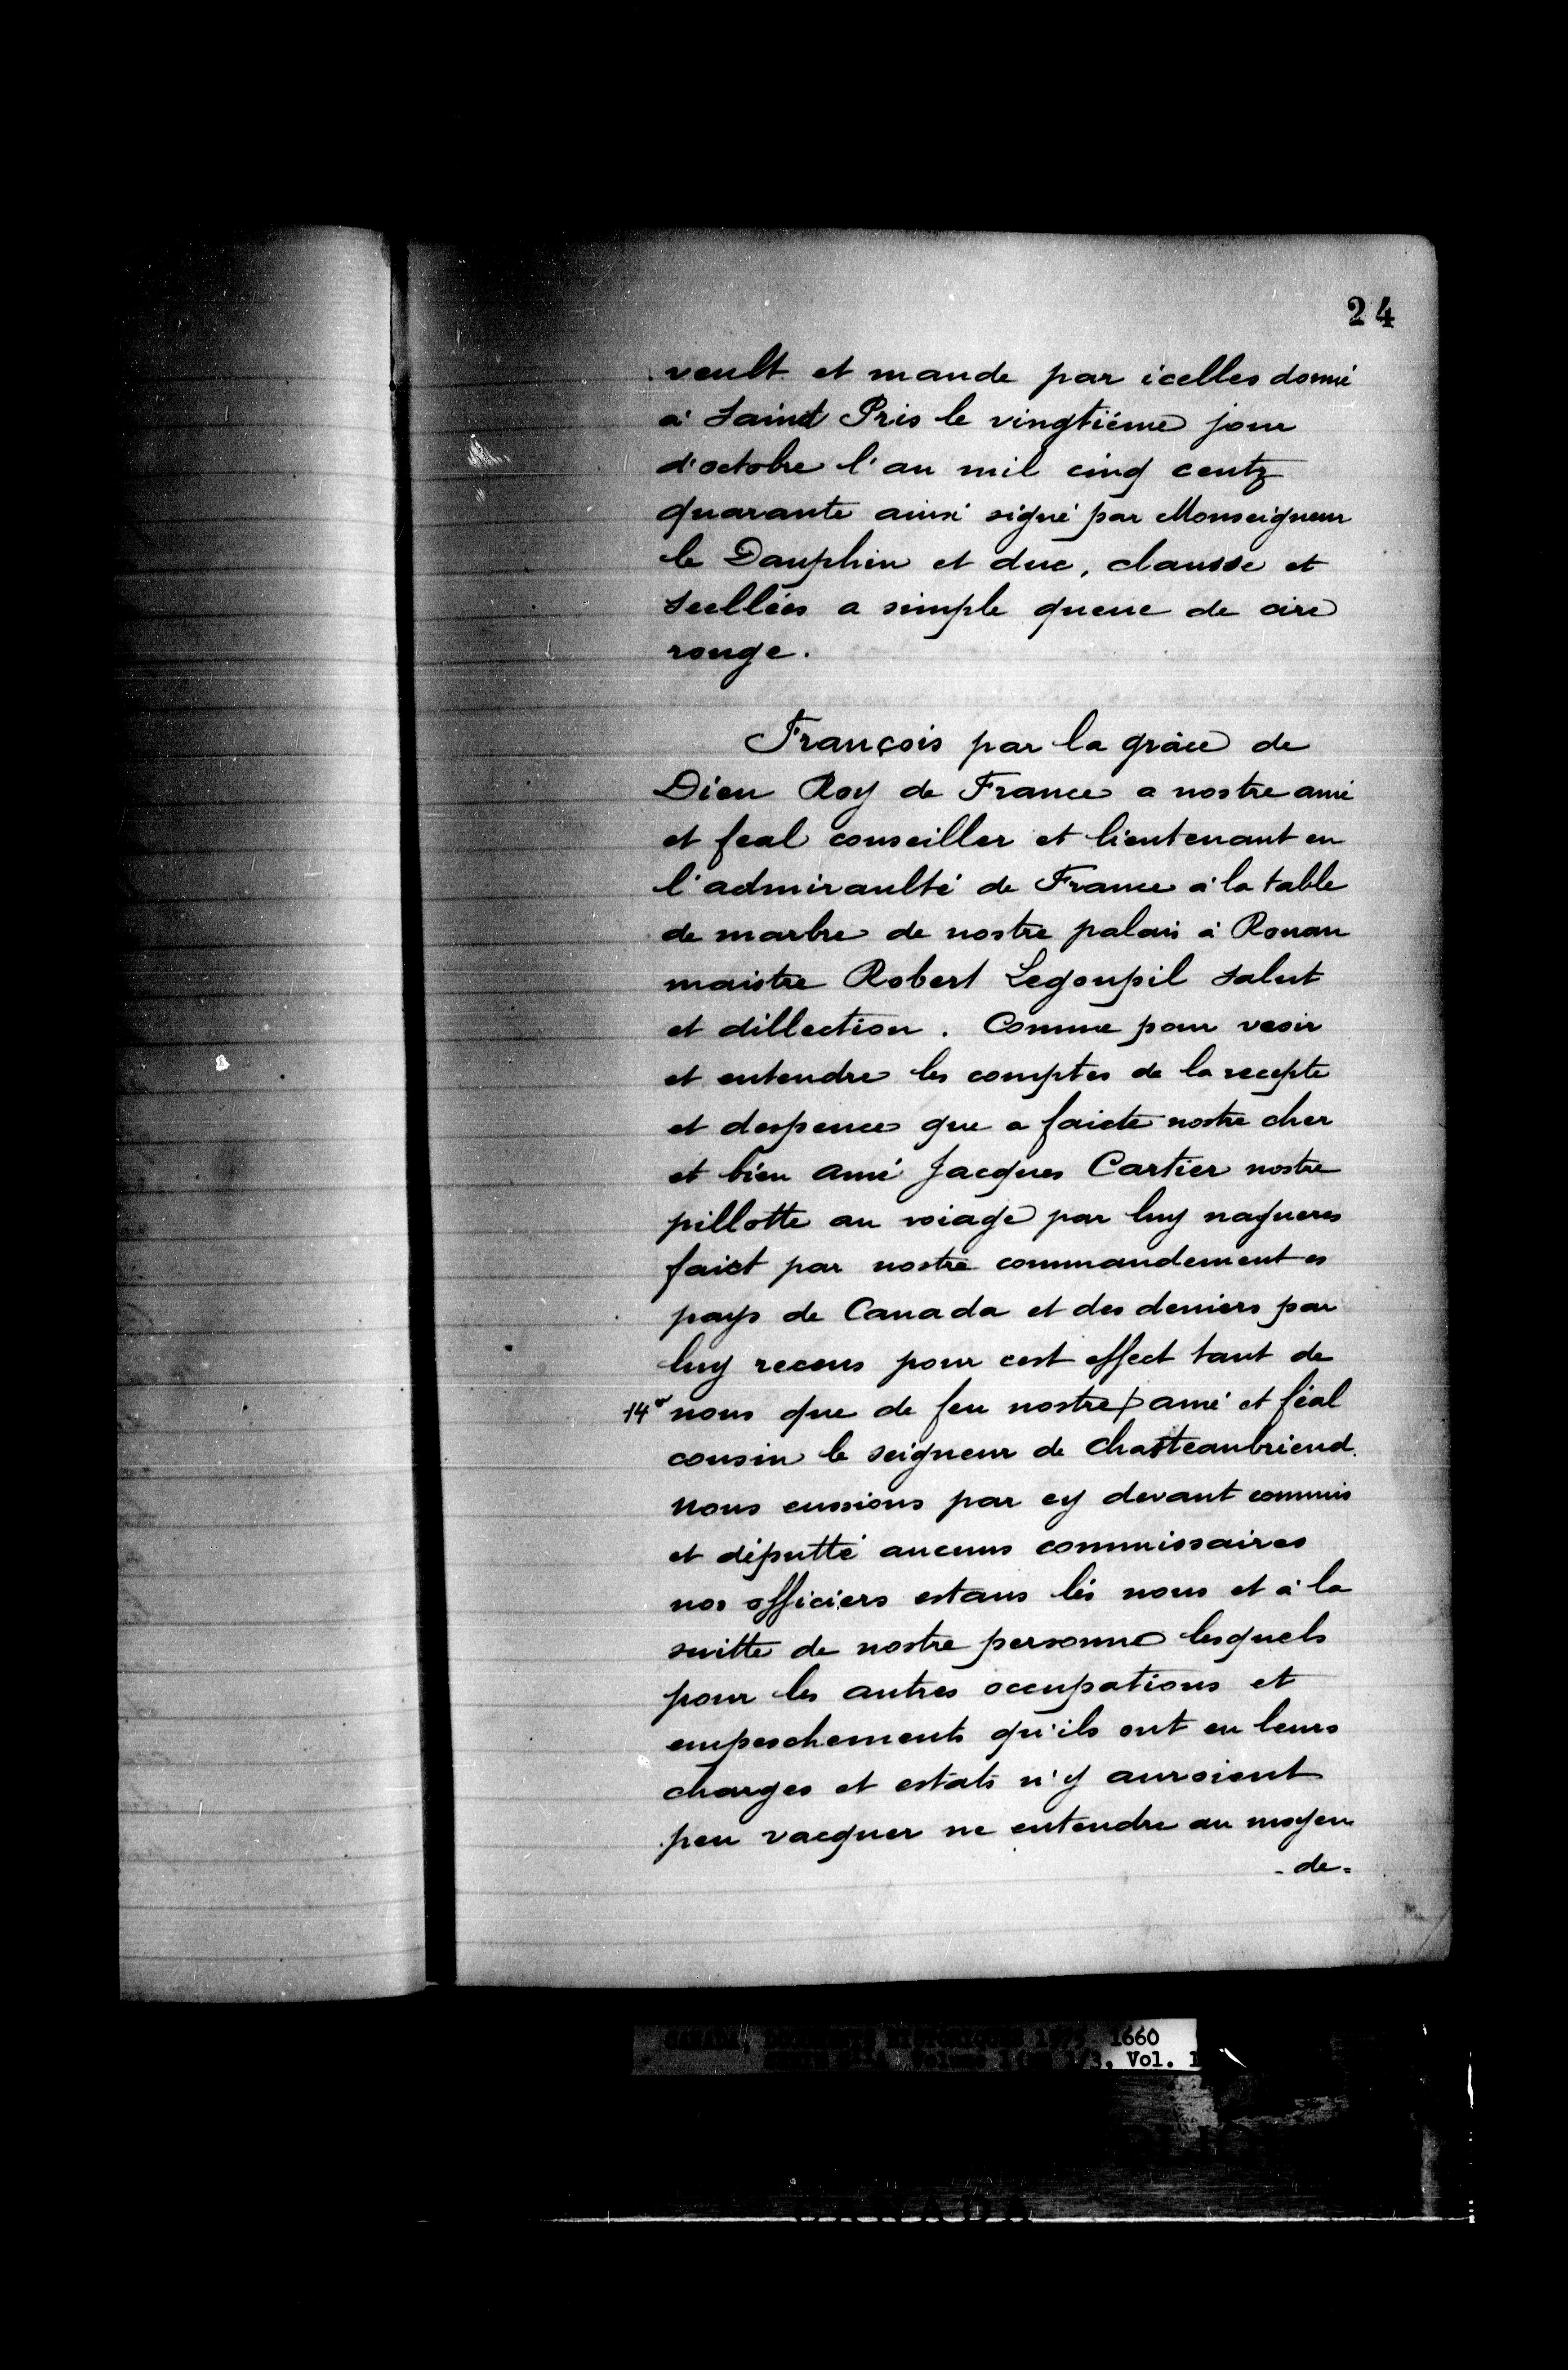 24
veult et mande par icelles donné
à Sainct Pris le vingtième jour
d'octobre l'an mil cinq centz
quarante ainsi signé par Monseigneur
le Dauphin et duc, clausse et
scellées a simple queue de cire
rouge.
François par la grâce de
Dieu Roy de France a nostre amé
et feal conseiller et lieutenant en
l'admiraulté de France à la table
de marbre de nostre palais à Rouan
maistre Robert Legoupil salut
et dillection. Comme pour veoir
et entendre les comptes de la recepte
et despence que a faicte nostre cher
et bien amé Jacques Cartier nostre
pillotte au voiage par luy nagueres
faict par nostre commandement es
pays de Canada et des deniers par
luy receus pour cest effect tant de
14v nous que de feu nostre amé et féal
cousin le seigneur de Chasteaubriend.
Nous eussions par cy devant commis
et députté aucuns commissaires
nos officiers estans lés nous et à la
suitte de nostre personne lesquels
pour les autres occupations et
empeschements qu'ils ont en leurs
charges et estats n'y auroient
peu vacquer ne entendre au moyen
- de -
1660
3, Vol. I